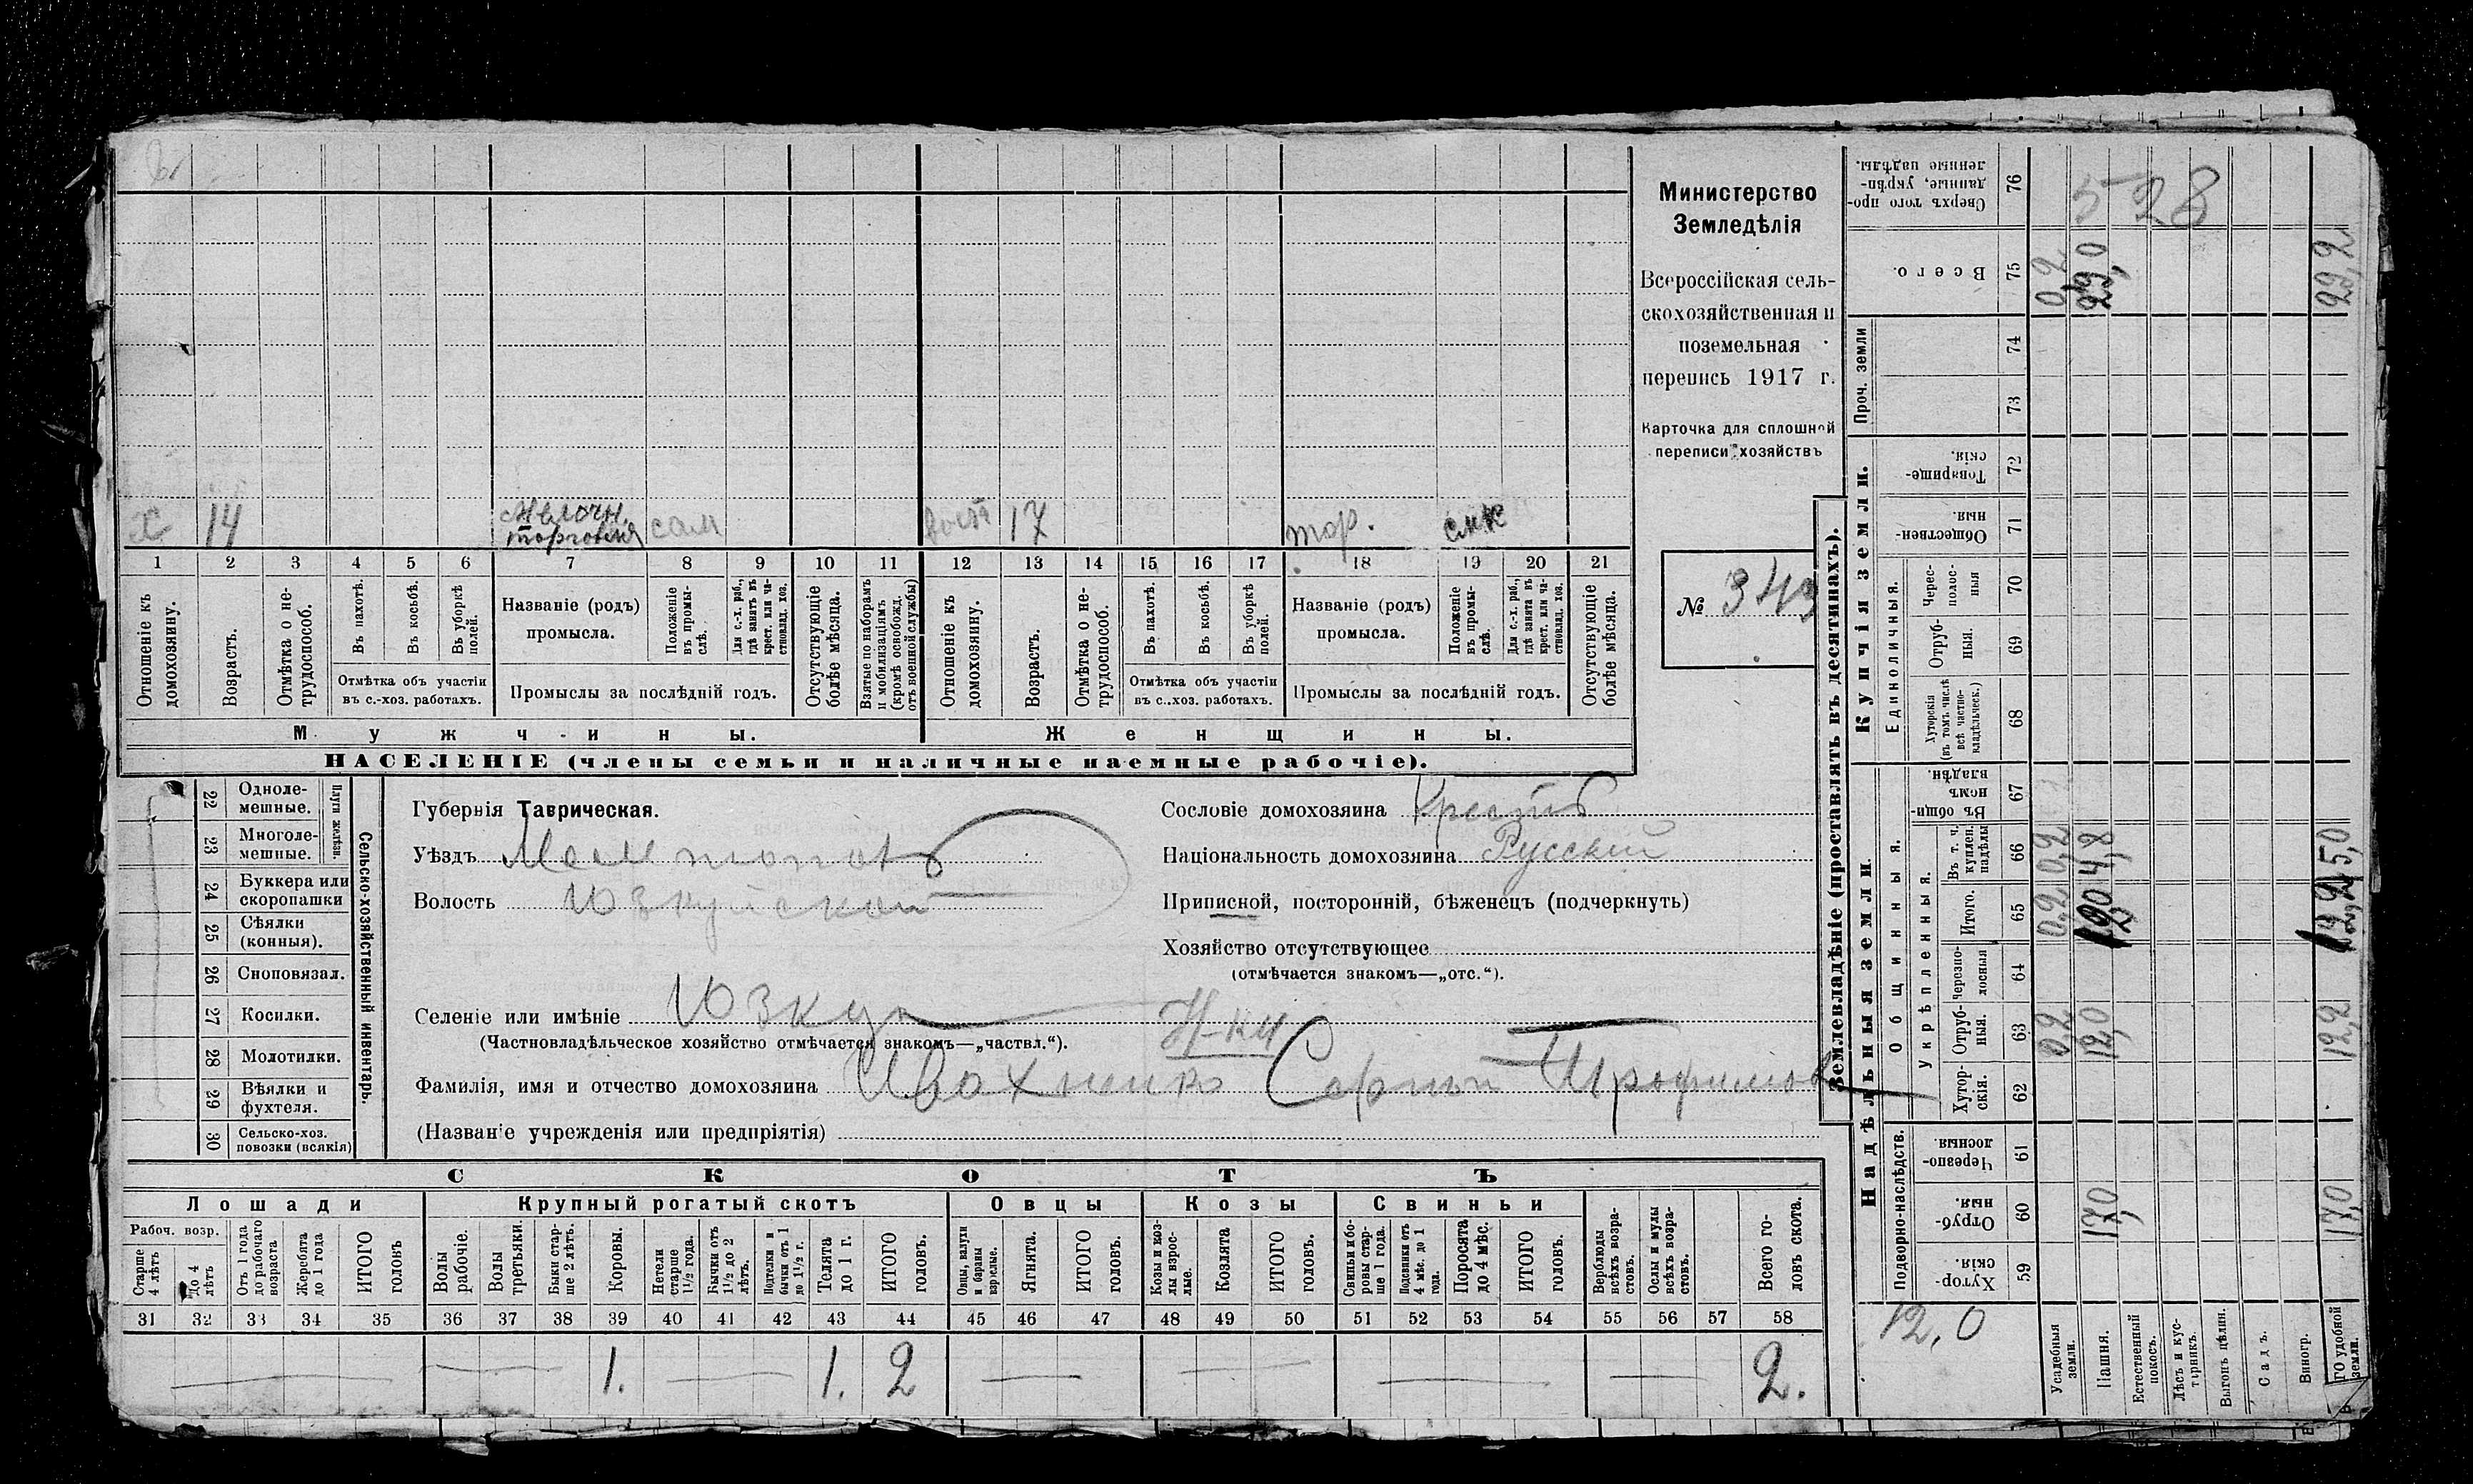 х 14 Мелочн. торговля сам 17 тор.
1 2 3 4 5 6 7 8 9 10 11 12 13 14 15 16 17 18 19 20 21
Отношеніе къ домохозяину.
Возрастъ.
Отмѣтка о не-трудоспособ.
Въ пахотѣ.
Въ косьбѣ.
Въ уборкѣ полей.
Отмѣтка объ участіи
въ с.-хоз. работахъ.
Названіе (родъ)
промысла.
Положеніе въ промы-слѣ.
Для с.-х. раб., гдѣ занятъ въ крест. или ча-стновлад. хоз.
Промыслы за послѣдній годъ.
Отсутствующіе болѣе мѣсяца.
Взятые по наборамъ и мобилизаціямъ (кромѣ освобожд. отъ военной службы)
Отношеніе къ домохозяину.
Возрастъ.
Отмѣтка о не-трудоспособ.
Въ пахотѣ.
Въ косьбѣ.
Въ уборкѣ полей.
Отмѣтка объ участіи
въ с..хоз. работахъ.
Названіе (родъ)
промысла.
Положеніе въ промы-слѣ.
Для с.-х. раб., гдѣ занята въ крест. или ча-стновлад. хоз.
Промыслы за послѣдній годъ.
Отсутствующіе болѣе мѣсяца.
Мужчины. Женщины.
НАСЕЛЕНІЕ (члены семьи и наличные наемные рабочіе).
Министерство
Земледѣлія
Всероссійская сель-
скохозяйственная и
поземельная
перепись 1917 г.
Карточка для сплошной
переписи хозяйствъ
№ 343
22 Одноле-мешные.
23 Многоле-мешные.
Плуги желѣзн.
24 Буккера или скоропашки
25 Сѣялки (конныя).
26 Сноповязал.
27 Косилки.
28 Молотилки.
29 Вѣялки и фухтеля.
30 Сельско-хоз. повозки (всякія)
Сельско-хозяйственный инвентарь.
Губернія Таврическая.
Уѣздъ
Волость Юзкуйской
Селеніе или имѣніе Юзкуи
(Частновладѣльческое хозяйство отмѣчается знакомъ—„частвл.“).
Н-ки
Фамилія, имя и отчество домохозяина Ивахненко Сергѣй Трофимов
(Названіе учрежденія или предпріятія)
Сословіе домохозяина Крестъ
Національность домохозяина Русский
Приписной, посторонній, бѣженецъ (подчеркнуть)
Хозяйство отсутствующее
(отмѣчается знакомъ—„отс.“).
СКОТЪ
Лошади Крупный рогатый скотъ Овцы Козы Свиньи
Рабоч. возр.
Старше 4 лѣтъ
До 4 лѣтъ
Отъ 1 года до рабочаго возраста
Жеребята до 1 года
ИТОГО головъ
Волы рабочіе.
Волы третьяки.
Быки стар-ше 2 лѣтъ.
Коровы.
Нетели старше 1½ года.
Бычки отъ 1½ до 2 лѣтъ.
Подтелки и бычки отъ 1 до 1½ г.
Телята до 1 г.
ИТОГО головъ.
Овцы, валухи и бараны взрослые.
Ягнята.
ИТОГО головъ.
Козы и коз-лы взрос-лые.
Козлята
ИТОГО головъ.
Свиньи и бо-ровы стар-ше 1 года.
Подсвинки отъ 4 мѣс. до 1 года.
Поросята до 4 мѣс.
ИТОГО головъ.
Верблюды всѣхъ возра-стовъ.
Ослы и мулы всѣхъ возра-стовъ.
Всего го-ловъ скота.
31 32 33 34 35 36 37 38 39 40 41 42 43 44 45 46 47 48 49 50 51 52 53 54 55 56 57 58
1. 1. 2 2.
Землевладѣніе (проставлять въ десятинахъ).
Надѣльныя земли
Купчія земли.
Проч. земли
Общинныя.
Укрѣпленныя.
Подворно-наслѣдств.
Единоличныя.
Сверхъ того про-данные, укрѣп-ленные надѣлы. 76 528
Всего. 75 0,2 29,0 29,2
74
73
Товарище-скія. 72
Обществен-ныя. 71
Черес-полос-ныя 70
Отруб-ныя. 69
Хуторскія (въ томъ числѣ всѣ частно-владѣльческ.) 68
Въ общи-номъ владѣн. 67
Въ т. ч. куплен. надѣлы 66 0,2 4,8 5,0
Итого. 65 0,2
Черезпо-лосныя 64
Отруб-ныя. 63 0,2 12,0 12,2
Хутор-скія. 62
Черезпо-лосныя. 61
Отруб-ныя. 60 17,0 17,0
Хутор-скія. 59
12,0
Усадебныя земли.
Пашня.
Естественный покосъ.
Лѣсъ и кус-тарникъ.
Выгонъ цѣлин.
Садъ.
Виногр.
ГО удобной земли.